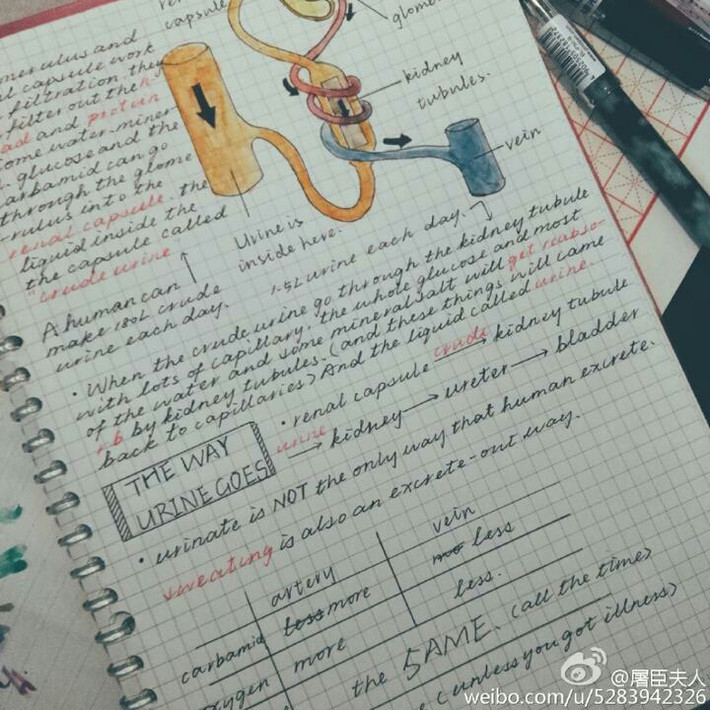 renal
capsule
glome
kidney
tubules.
vein
merulus and
al capsule work
filtration, they
filter out the
ad and protein
ome water, miner
glucose and the
carbamid can go
through the glome
-rulus into the
renal capsule. the
liquid inside the
the capsule called
"crude urine
Urine is
inside here.
A human can
make 180L crude
urine each day.
1.5L urine each day.
· When the crude urine go through the kidney tubule
with lots of capillary, the whole glucose and most
of the water and some mineral salt will get reabso-
rb by kidney tubules. (and these things will came
back to capillaries) And the liquid called urine.
THE WAY
URINE GOES
· renal capsule crude urine → kidney tubule
→ kidney → ureter → bladder
· urinate is NOT the only way that human excrete.
sweating is also an excrete-out way.
artery
vein
carbamid
less more
less
oxygen
more
less.
the SAME. (all the time)
(unless you got illness)
@屠臣夫人
weibo.com/u/5283942326